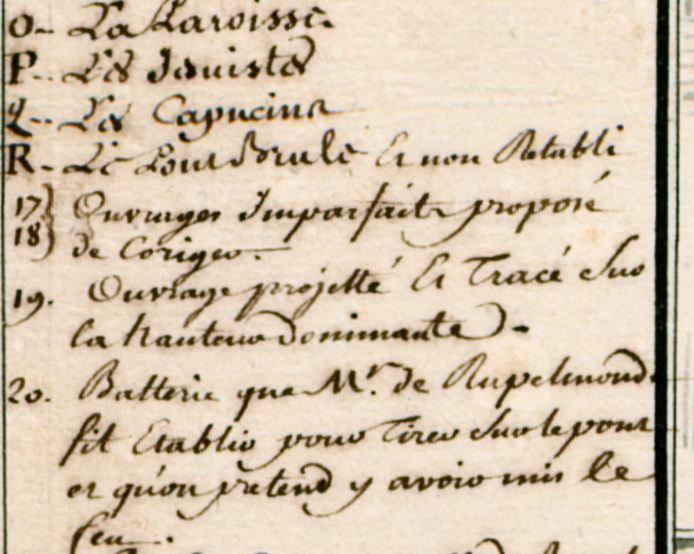 O- La Paroisse
P- Les Jesuistes
Q-- Les Capucins
R- Le Pont Brulé Et non Retabli
17} Ouvrages Imparfaits proposé
18} de Coriger.
19. Ouvrage projetté Et Tracé Sur
la hauteur dominante -
20. Batterie que Mr. de Rupelmonde
fit Etablir pour Tirer Sur le pont
et qu'on pretend y avoir mis le
feu.